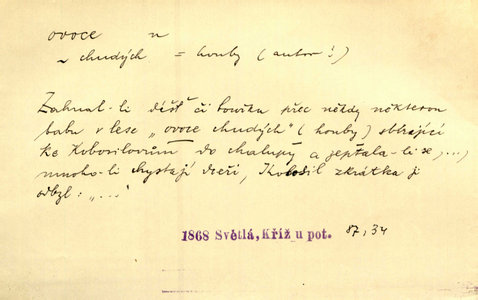 ovoce n
~ chudých = houby (autor!)
Zahnal-li déšť či bouřka přec někdy některou
babu v lese „ovoce chudých" (houby) sbírající
ke Kobosilovům do chalupy a zeptala-li se, ...,
mnoho-li chystají dceři, Kobosil zkrátka ji
odbyl: „..."
1868 Světlá, Kříž u pot. 87, 34